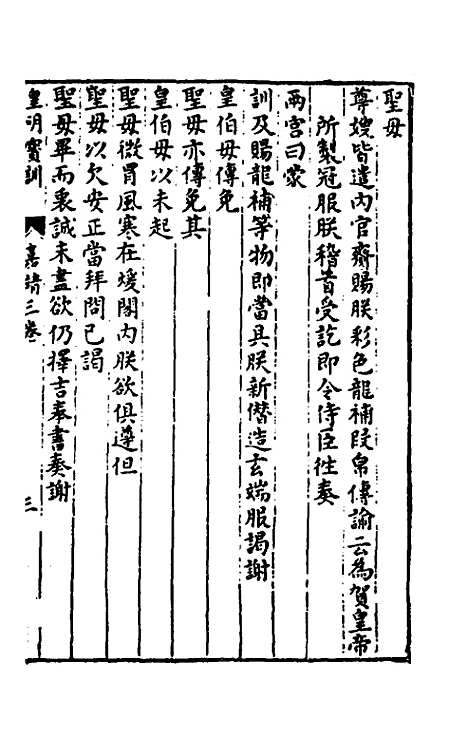 聖母
尊嫂皆遣內官齎賜朕彩色龍補段帛傳諭云為賀皇帝
所製冠服朕稽首受訖即令侍臣徃奏
兩宮曰蒙
訓及賜龍補等物即當具朕新僣造玄端服謁謝
皇伯母傳免
聖母亦傳免其
皇伯母以未起
聖母微冒風寒在煖閣內朕欲俱遵但
聖母以欠安正當拜問已謁
聖母畢而衷誠未盡欲仍擇吉奉書奏謝
皇明寶訓 嘉靖三卷 三